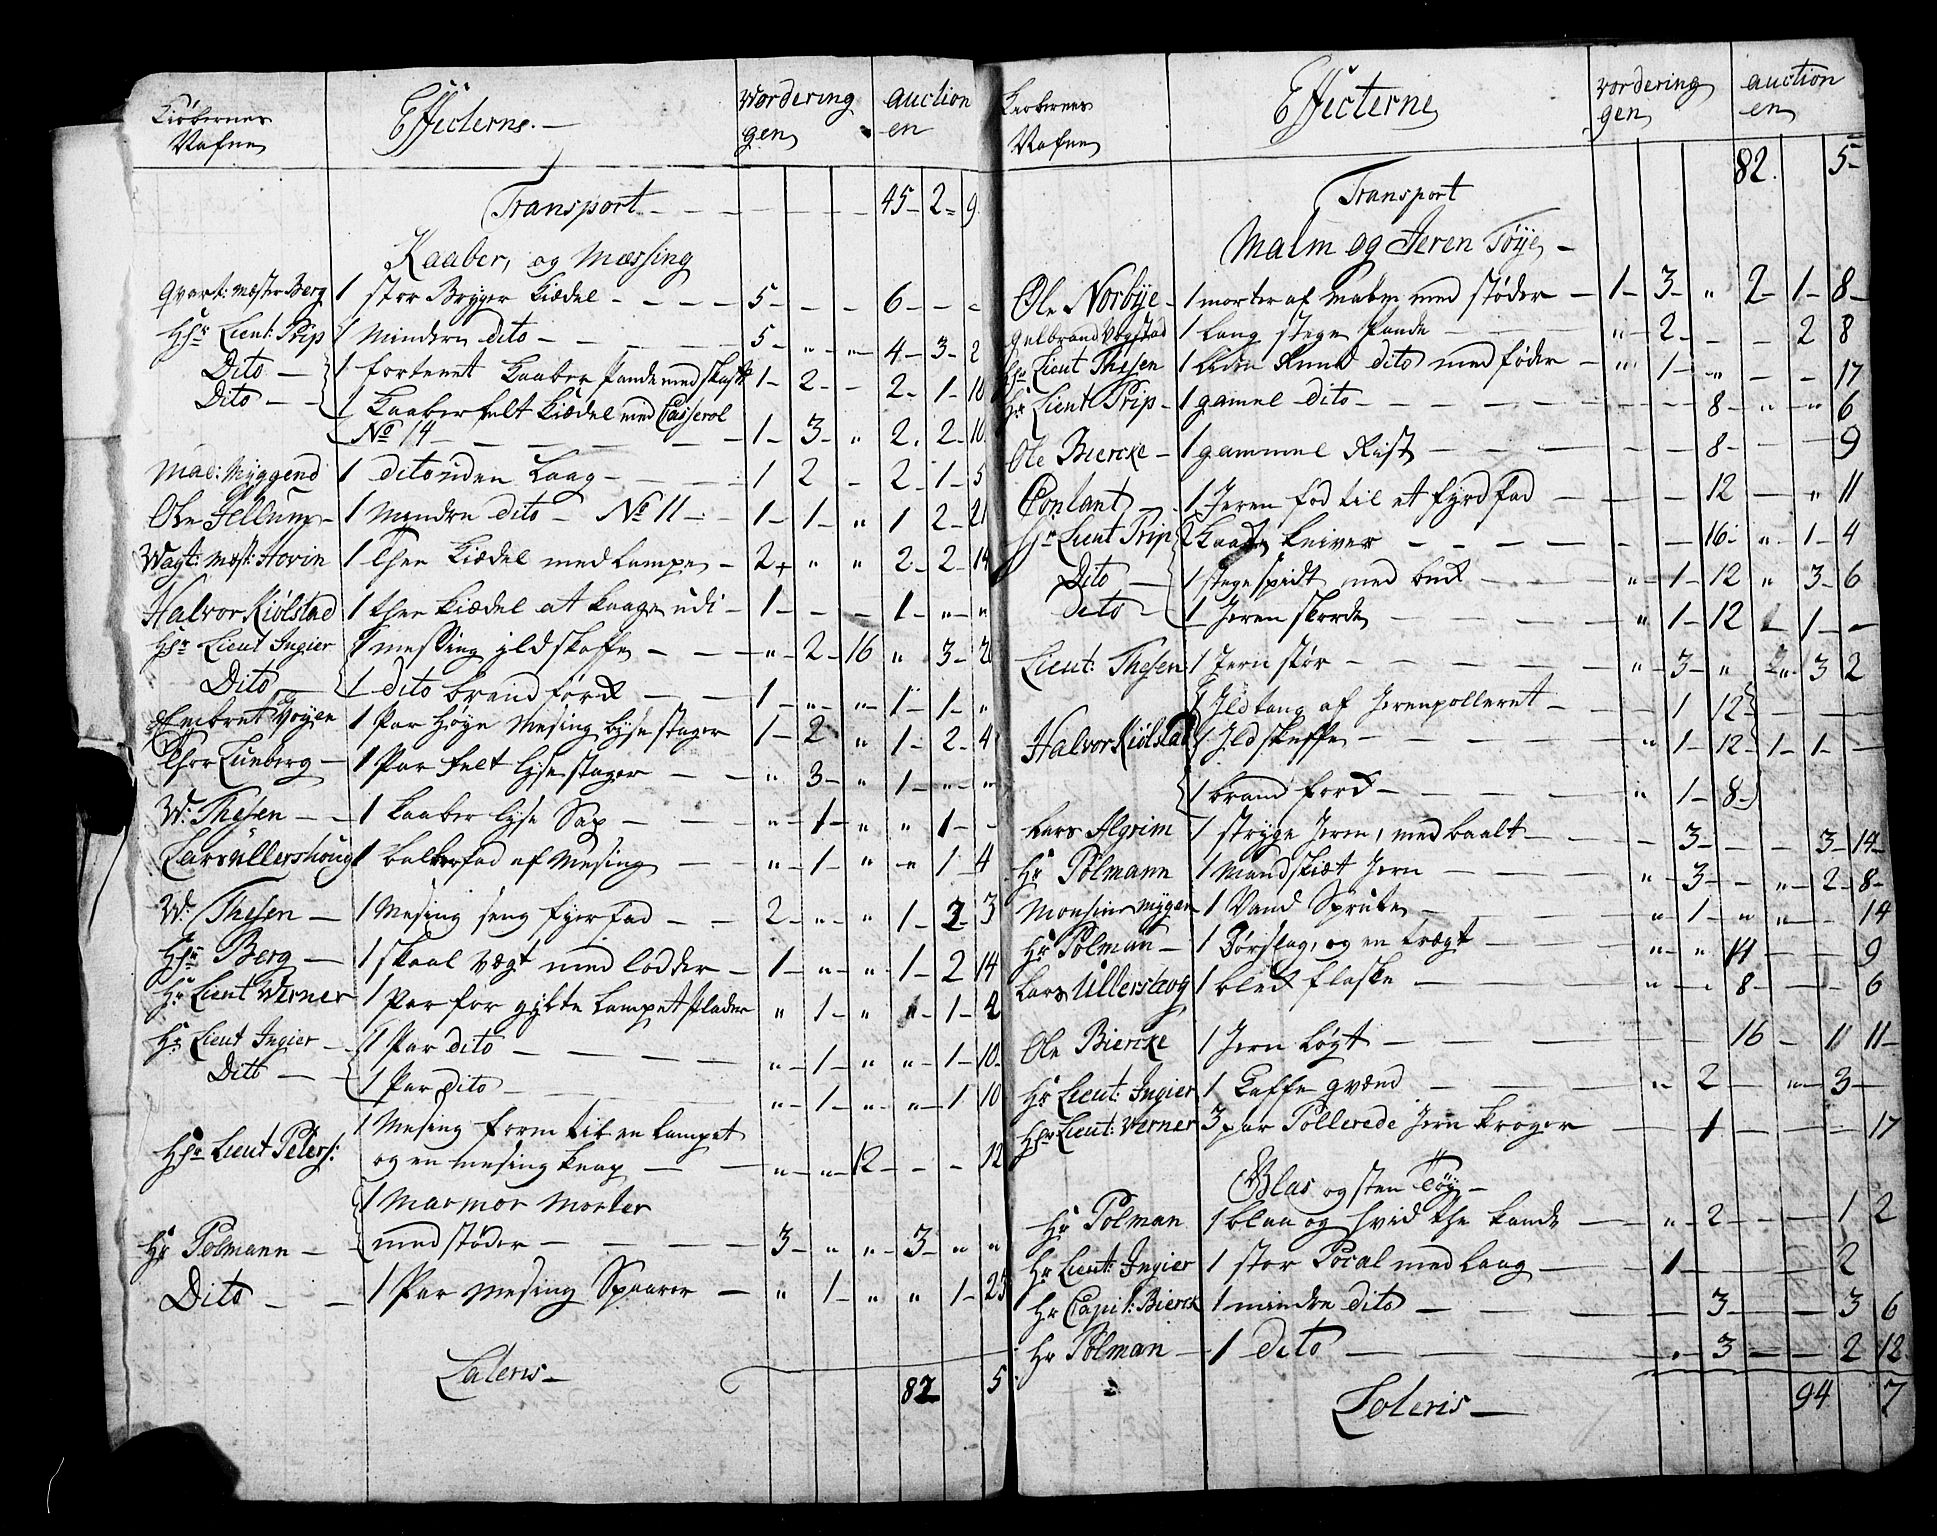 Kiøbernes Nafne Effecterne. Vordering gen auction en
Transport 45 - 2 - 9
Kaaber, og Messing
Qvart: mæster Berg 1 stor Brygger Kiædel 5 - - 6 - -
Hr Lieut: Prip 1 Mindern dito 5 " " 4 - 3 - 2
Dito 1 fortenet Kaaber Pande med skaft 1 - 2 - 2 - 1 - 10
Dito 1 Kaaber felt Kiædel med Casserol
No 14 1 - 3 - " 2 - 2 - 10
Mad: Myggend 1 dito uden Laag 1 2 - 2 - 1 - 5
Ole Jellum 1 Mindre dito No 11 1 - 1 - " 1 2 - 21
Wagt: mest: Hovin 1 Thee Kiædel med Lampe 2 " " 2 - 2 - 14
Halvor Kiølstad 1 thee Kiædel at Laage udi 1 - - - 1 - " "
Hr Lieut Ingier 1 messing ild skoffe " 2 - 16 " 3 - 2
Dito 1 dito brand førk 1 - " - " 1 - 1 - "
Embret Woyen 1 Par Høye Mesing lyse stager 1 - 2 " 1 - 2 - 4
Thor Lunberg 1 Par felt lyse stager " 3 - " 1 - " - "
W: Thesen 1 Kaaber lyse Sax " 1 - " " 1 - -
Lars Ullershoug 1 balberfad af Mesing " - 1 - " " 1 - 4
W: Thesen 1 Mesing seng fyrfad 2 - " - " 1 - 2 - 3
Hr Berg 1 skaal vægt med lodder 1 - " - " 1 - 2 14
Hr Lieut Werner 1 Par for gylte Lampet Plader " 1 - " " 1 - 2
Hr Lieut Ingier 1 Par dito " 1 - " " 1 - 10
Dito 1 Par dito " 1 - " " 1 - 10
1 Mesing form til en Lampet
Hr Lieut Peters: og en mesing knap " " 12 - - - 12
1 Marmor Morter
Hr Polmann med støder 3 - " " 3 - " "
Dito 1 Par Mesing Spaarer " 1 - " " 1 - 25
Lateris 82 5
Kiøbernes Nafne Effecterne vordering gen auction en
Transport 82. 5
Malm og Jeren Tøye
Ole Norbye 1 morter af malm med støder 1 - 3 - " 2 - 1 - 8
Gulbrand Vogstad 1 Lang stege Pande " 2 - - - 2 8
Hr Lieut Thesen 1 liden Rund dito med føder " 1 - " - - 17
Hr Lieut Prip 1 gamel dito 8 - " - " 6
Ole Biercke 1 gammel Rist 8 - - - 9
Conlant 1 Jeren fod til et fyrd fad 12 - " 11
Hr Lieut Prip 2 kniver 16 - " 1 - 4
Dito 1 stegespidt med buk " 1 - 12 " 3 - 6
Dito 1 Jeren skorde " 1 - 12 1 - -
Lieut: Thesen 1 Jern stør " 3 - " 3 2
1 Ildtang af Jerenpolleret 1 12
Halvor Kiølstad 1 Ildskuffe " 1 - 12 - 1 - 1 -
1 brand fork " 1 - 8
Lars Algrim 1 stryge Jern, med baalt 3 - - - 3 - 14
Hr Polmann 1 Mandskiæt Jern " 3 - - " 2 - 8
Monsiur mygen 1 Vand Sprute " 1 - " " - 14
Hr Polman 1 Dørslag, og en trægt " " 14 - - 9
Lars Ullershoug 1 blek flaske " - 8 - - - 6
Ole Biercke 1 Jern Løgt 16 - 11 11
Hr Lieut: Ingier 1 Caffe gværnd " 2 - " 3 -
Hr Lieut: Werner 3 par Pollerede Jern kroger 1 - - - 17
Glas og sten Tøy
Hr Polman 1 blaa og hvid the kande " 2 - - - 1 2
Hr Lieut: Ingier 1 stor Pocal med laag 1 - - - 2
Hr Capit: Bierck 1 mindre dito 3 - - 3 6
Hr Polman 1 dito 3 - - 2 12
Lateris 94 7